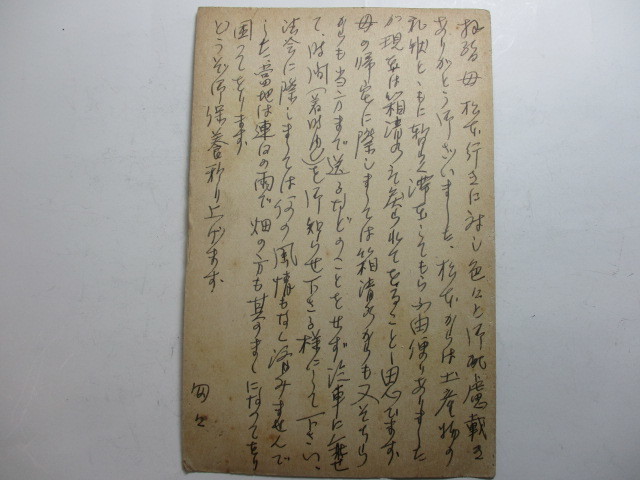 母 松本行きに対し色々と御配慮戴き
ありがとう御ざいました、松本からは土産物の
礼状とともに暫く滞在してもらふ由便りありました
が現在は箱清水に戻られてをることゝ思ひます
母の帰宅に際しましては箱清水よりも又そちら
よりも当方まで送るなどのことをせず汽車に乗せ
て、時間(着時刻)を御知らせ下さる様にして下さい、
法会に際しましては何の風情もなく済みませんで
した 當地は連日の雨で畑の方も其のまゝになってをり
困ってをります
どうぞ御保養祈り上げます